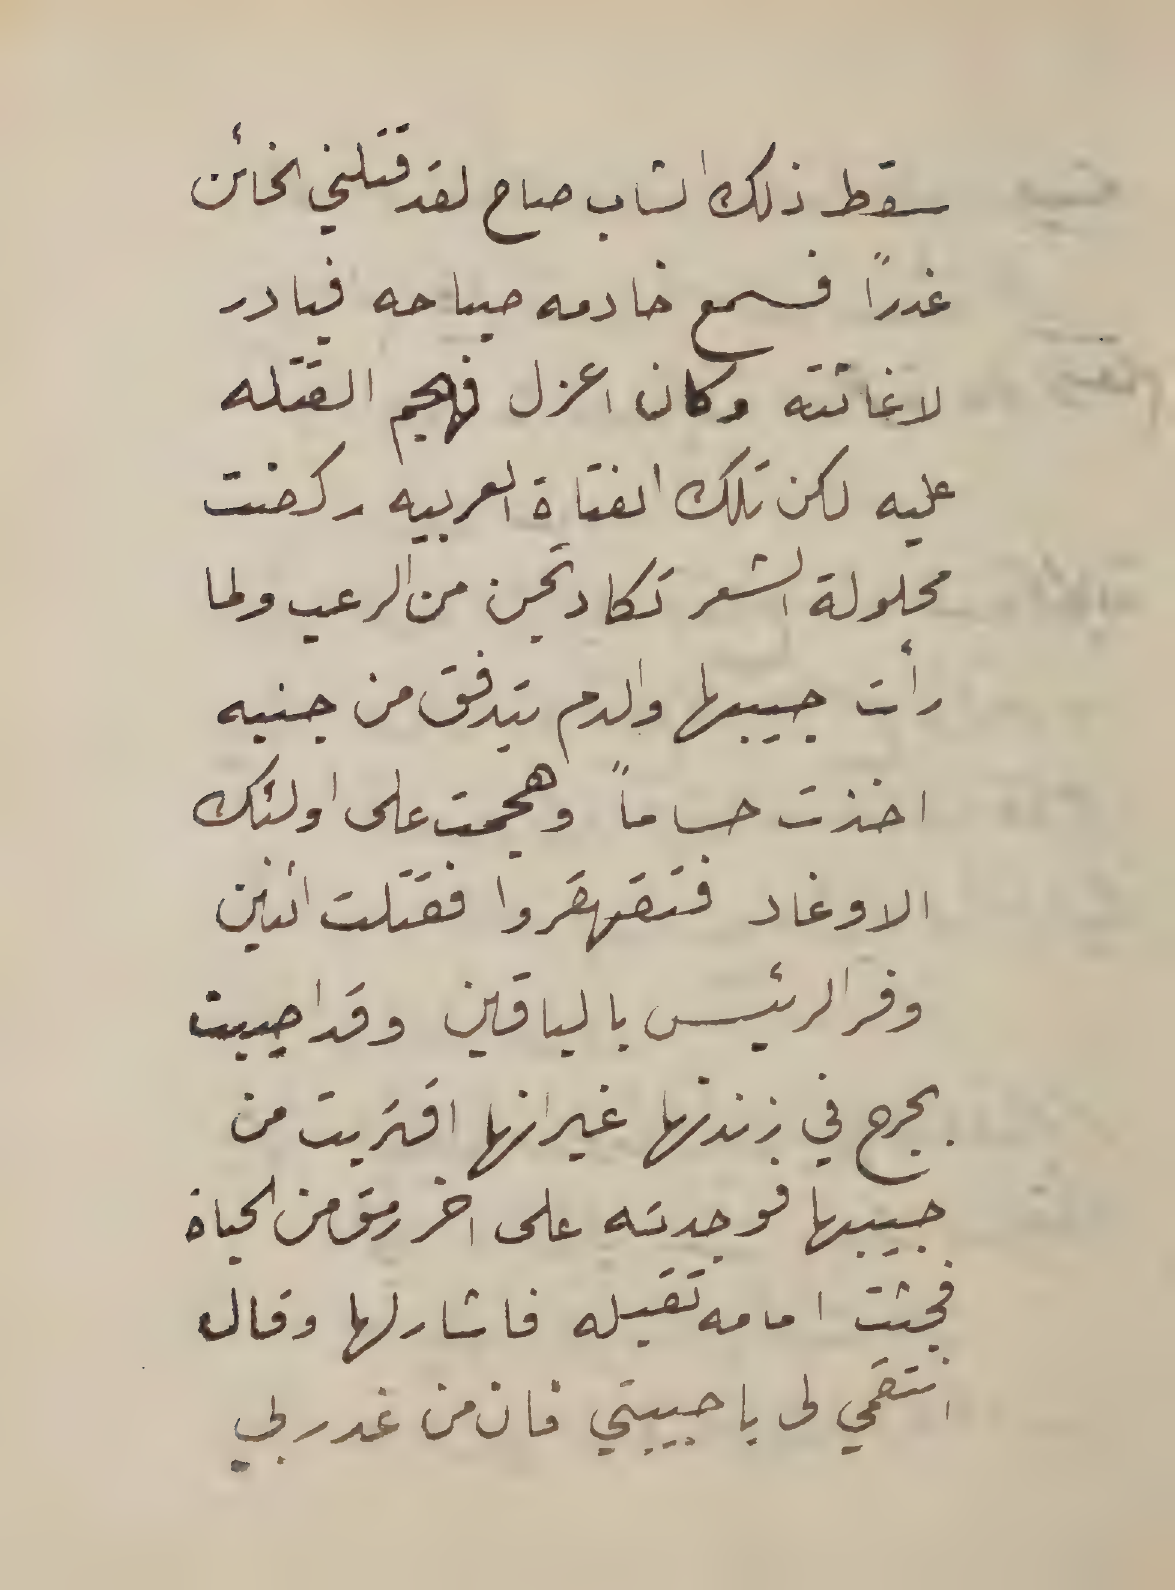 سقط ذلك الشاب صاح لقد قتلني الخائن
غدراً فسمع خادمه صياحه فبادر
لاغاثته وكان اعزل فهجم القتله
عليه لكن تلك الفتاة العربيه ركضت
محلولة الشعر تكاد تجن من الرعب ولما
رأت حبيبها والدم يتدفق من جنبيه
اخذت حساماً وهجمت على اولئك
الاوغاد فتقهقروا فقتلت اثنين
وفر الرئيس بالباقين وقد اصيبت
بجرح في زندها غير انها اقتربت من
حبيبها فوجدته على اخر رمق من الحياة
فجثت امامه تقبله فاشار لها وقال
انتقمي لى يا حبيبتي فان من غدر بي